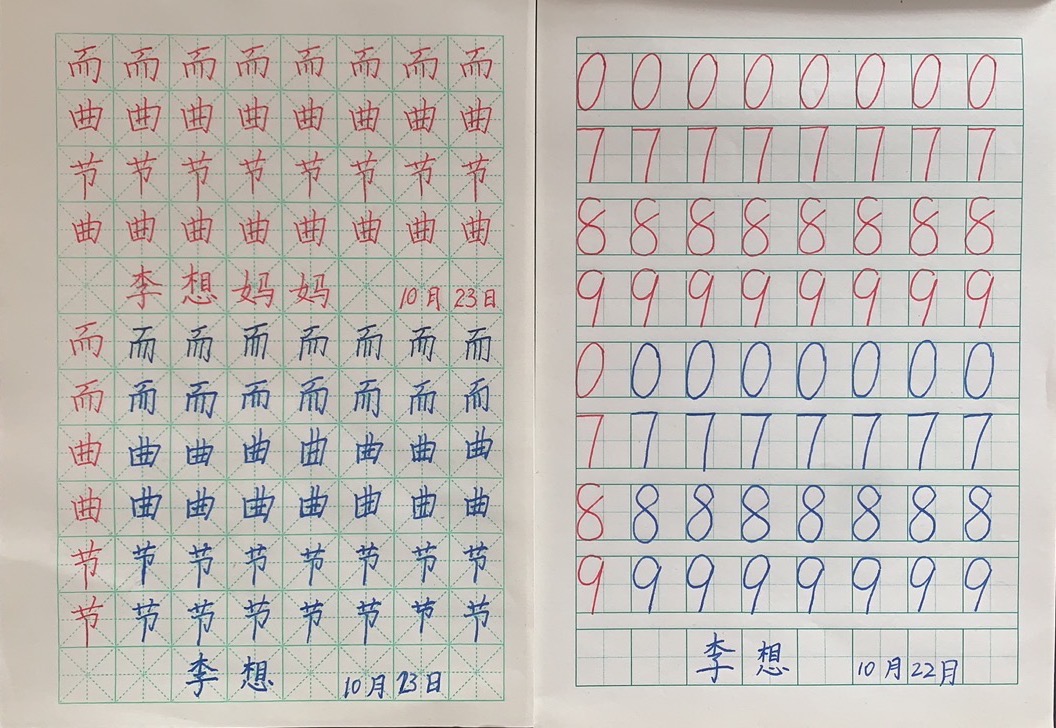 而 而 而 而 而 而 而 而
曲 曲 曲 曲 曲 曲 曲 曲
节 节 节 节 节 节 节 节
曲 曲 曲 曲 曲 曲 曲 曲
李 想 妈 妈 10月 23日
而 而 而 而 而 而 而 而
而 而 而 而 而 而 而 而
曲 曲 曲 曲 曲 曲 曲 曲
曲 曲 曲 曲 曲 曲 曲 曲
节 节 节 节 节 节 节 节
节 节 节 节 节 节 节 节
李 想 10月23日
0 0 0 0 0 0 0 0
7 7 7 7 7 7 7 7
8 8 8 8 8 8 8 8
9 9 9 9 9 9 9 9
0 0 0 0 0 0 0 0
7 7 7 7 7 7 7 7
8 8 8 8 8 8 8 8
9 9 9 9 9 9 9 9
李 想 10月22月